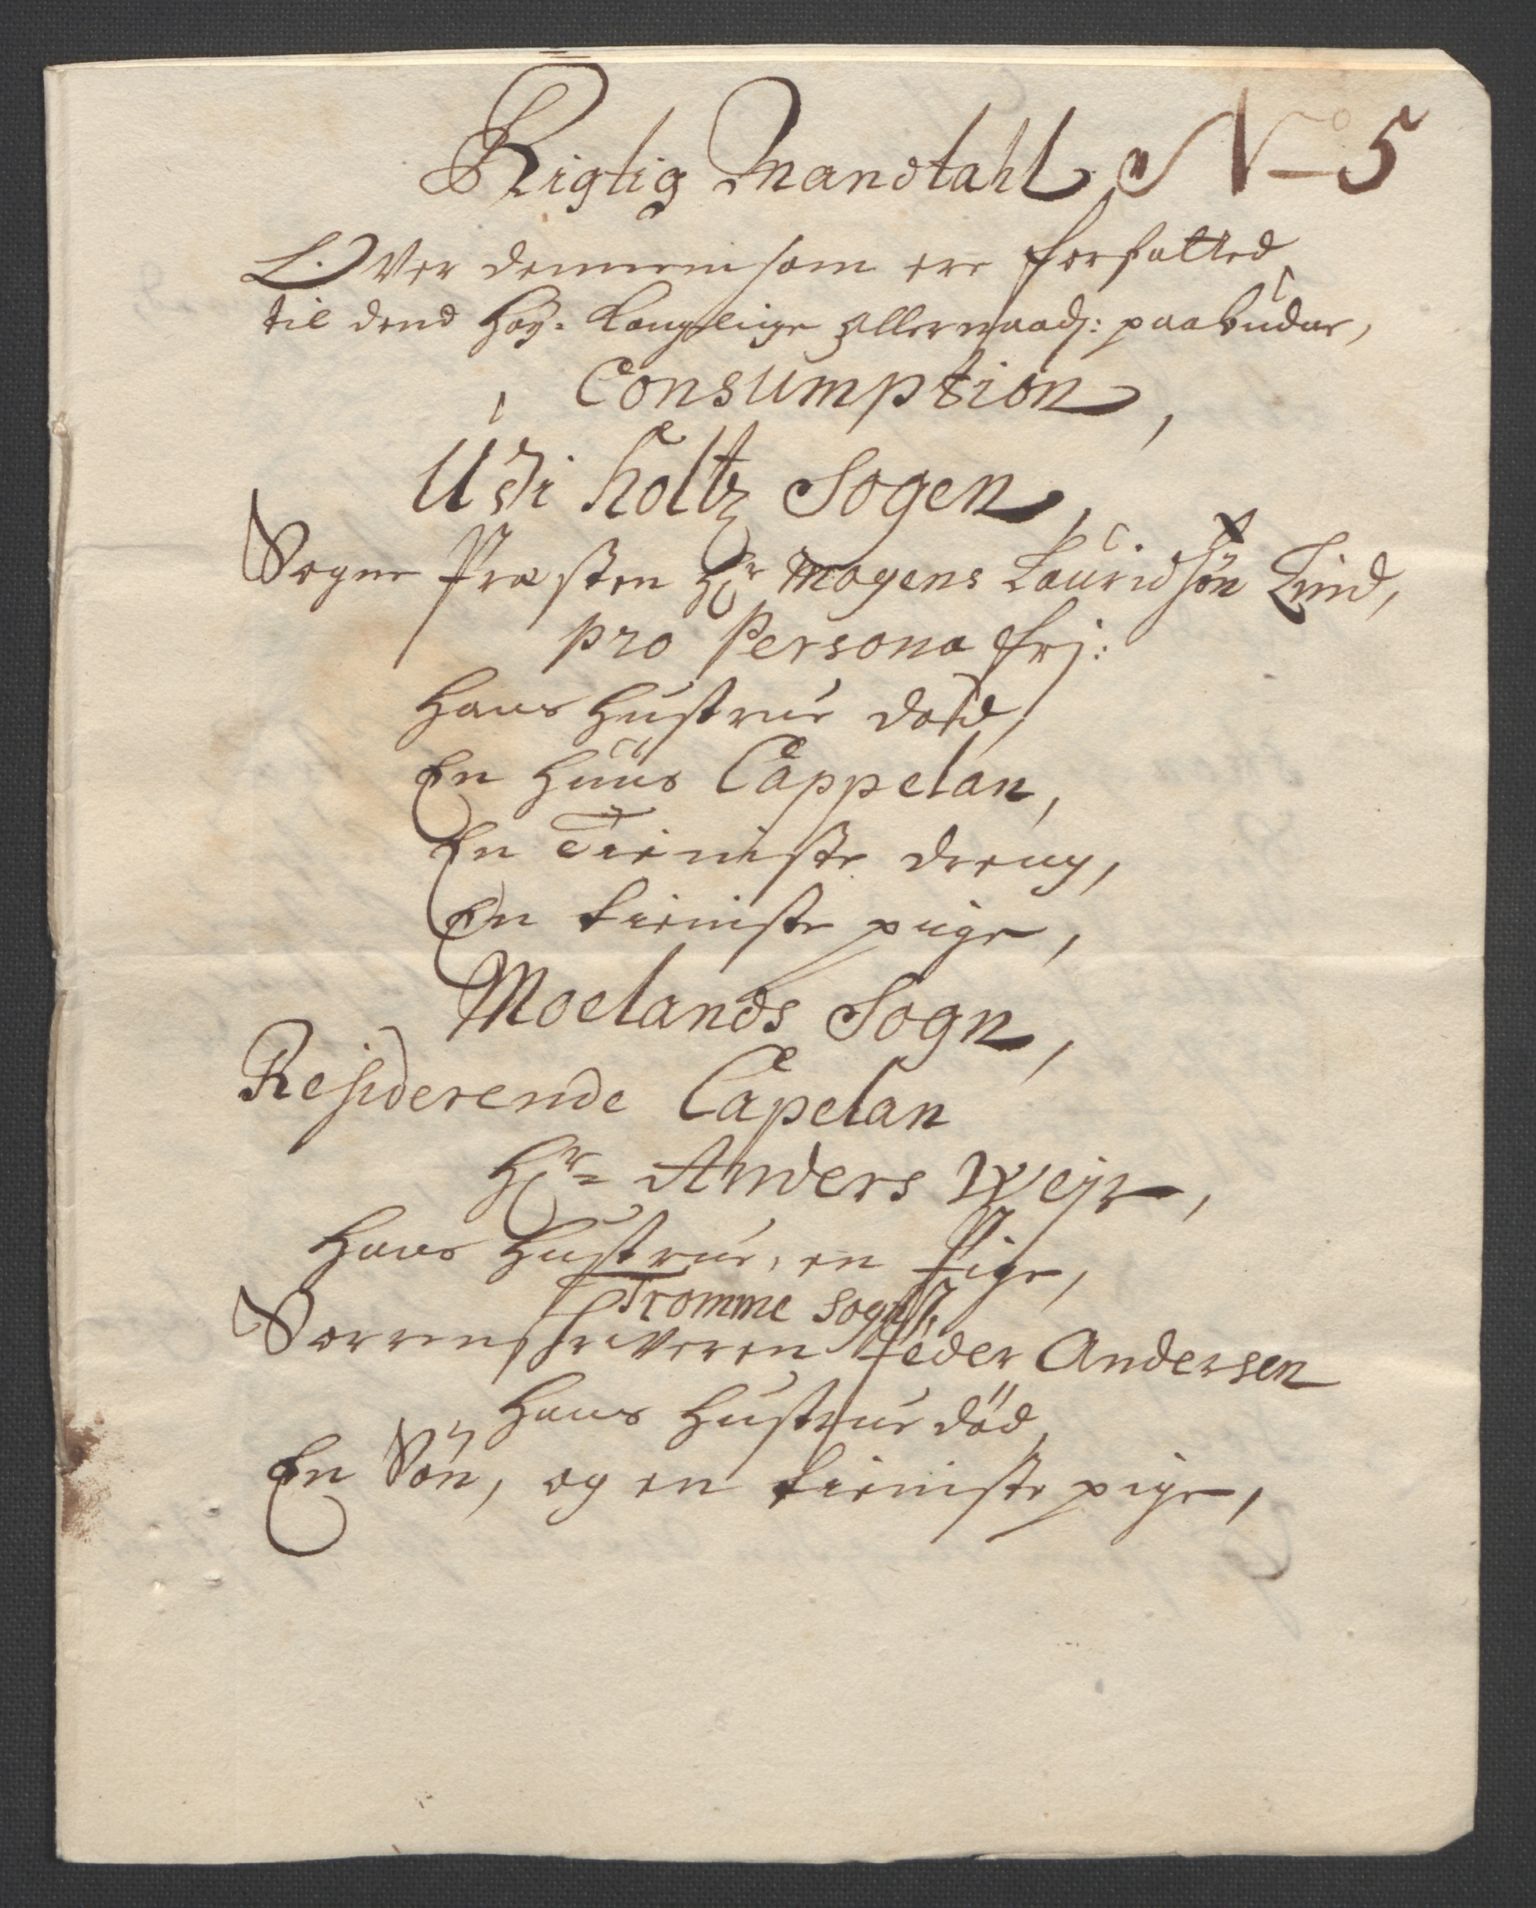 Rigtig Mandtahl No 5
Over dennem som ere forfatted
til dend høy: Kongelige allernaads: paabudne,
Consumption,
Udi Holtz Sogen,
Sogne Præsten Hr Mogens Lauridsøn Lind,
pro Persona frj:
Hans Hustrue død,
En Huus Cappelan,
En Tieniste dreng,
En tieniste piige,
Moelands Sogn,
Residerende Capelan
Hr Anders Wejr,
Hans Hustrue, en Pige,
Tromme Sogn,
Sorrenskriveren Peder Andersen
Hans Hustrue död,
En Søn, og en tieniste pige,